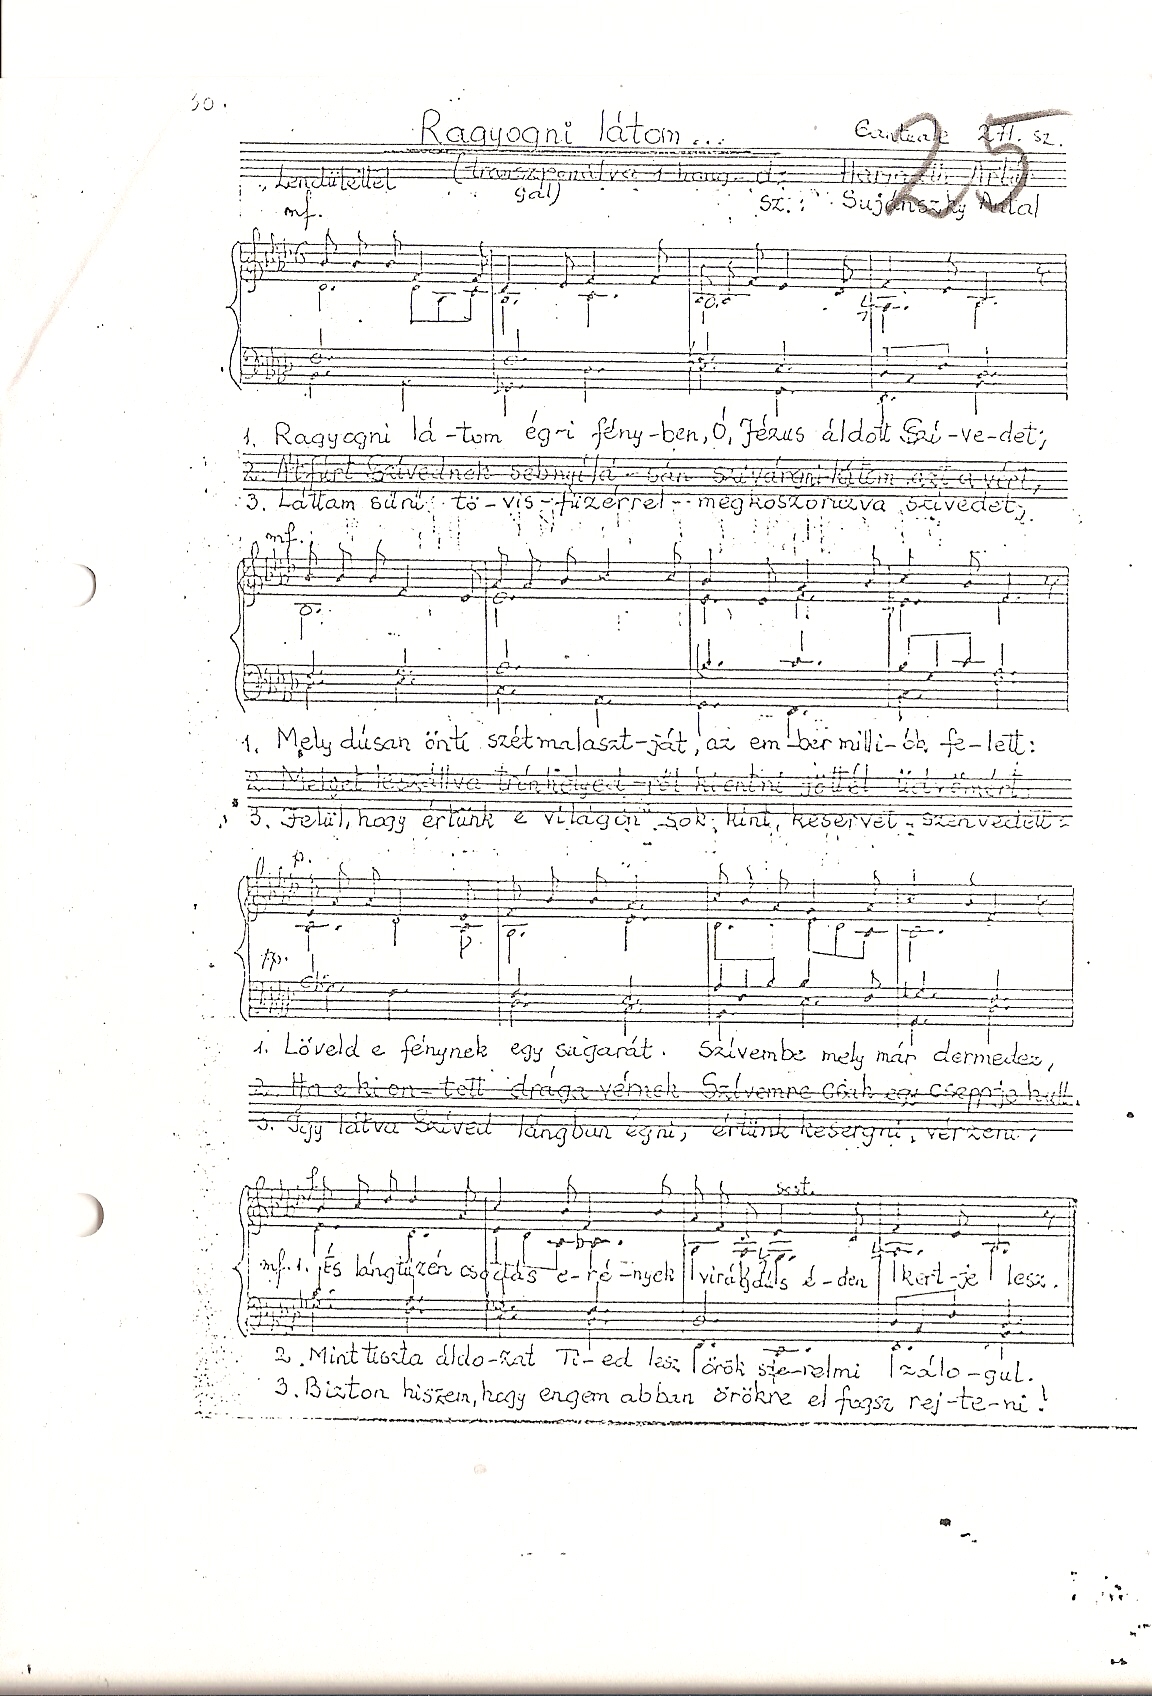 30.
Ragyogni látom...
271. sz.
25
Lendülettel
(transzponálva 1 hang
gal)
Sz.: Sujánszky Antal
mf.
1. Ragyogni lá-tom ég-i fény-ben, Ó, Jézus áldott Szí-ve-det;
2. Átfúrt Szívednek sebnyílá-sán szivárgni látom azt a vért,
3. Láttam sürü tö-vis-füzérrel megkoszorúzva szívedet;
mf.
1. Mely dúsan önti szét malaszt-ját, az em-ber milli-ók fe-lett:
2. leszállva jöttél
3. Felül, hogy értünk e világon sok kínt, keservet szenvedett
p.
pp.
1. Löveld e fénynek egy sugarát. Szívembe mely már dermedez,
2. Ha e ki on-tott drága vérnek Szívemre csak egy cseppje hull.
3. Így látva Szíved lángban égni, értünk kesergni, vérzeni;
f.
mf. 1. És lángtüzén csodás e-ré-nyek virágdús é-den kert-je lesz.
2. Mint tiszta áldo-zat Ti-ed lesz örök sze-relmi zálo-gul.
3. Bizton hiszem, hogy engem abban örökre el fogsz rej-te-ni!